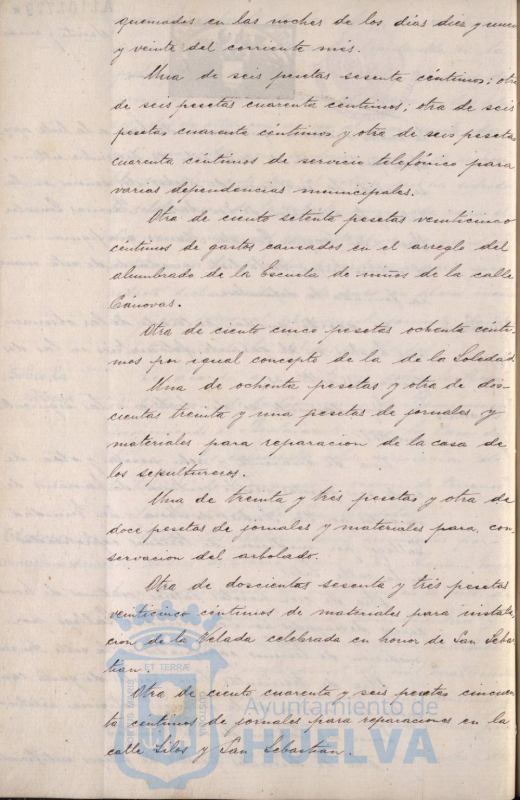 quemados en las noches de los dias diez y nueve
y veinte del corriente més.
Una de seis pesetas sesenta céntimos; otra
de seis pesetas cuarenta céntimos; otra de seis
pesetas cuarenta céntimos y otra de seis pesetas
cuarenta céntimos de servicio telefónico para
varias dependencias municipales.
Otra de ciento setenta pesetas veinticinco
céntimos de gastos causados en el arreglo del
alumbrado de la Escuela de niños de la calle
Cánovas.
Otra de ciento cinco pesetas ochenta cénti-
mos por igual concepto de la de la Soledad.
Una de ochenta pesetas y otra de dos-
cientas treinta y una pesetas de jornales y
materiales para reparacion de la casa de
los sepultureros.
Una de treinta y trés pesetas y otra de
doce pesetas de jornales y materiales para con-
servacion del arbolado.
Otra de doscientas sesenta y tres pesetas
veinticinco céntimos de materiales para instala-
cion de la Velada celebrada en honor de San Sebas-
tian.
Otra de ciento cuarenta y seis pesetas cincuen-
ta céntimos de jornales para reparaciones en la
calle Silos y San Sebastian.
ET TERRÆ
Ayuntamiento de
HUELVA